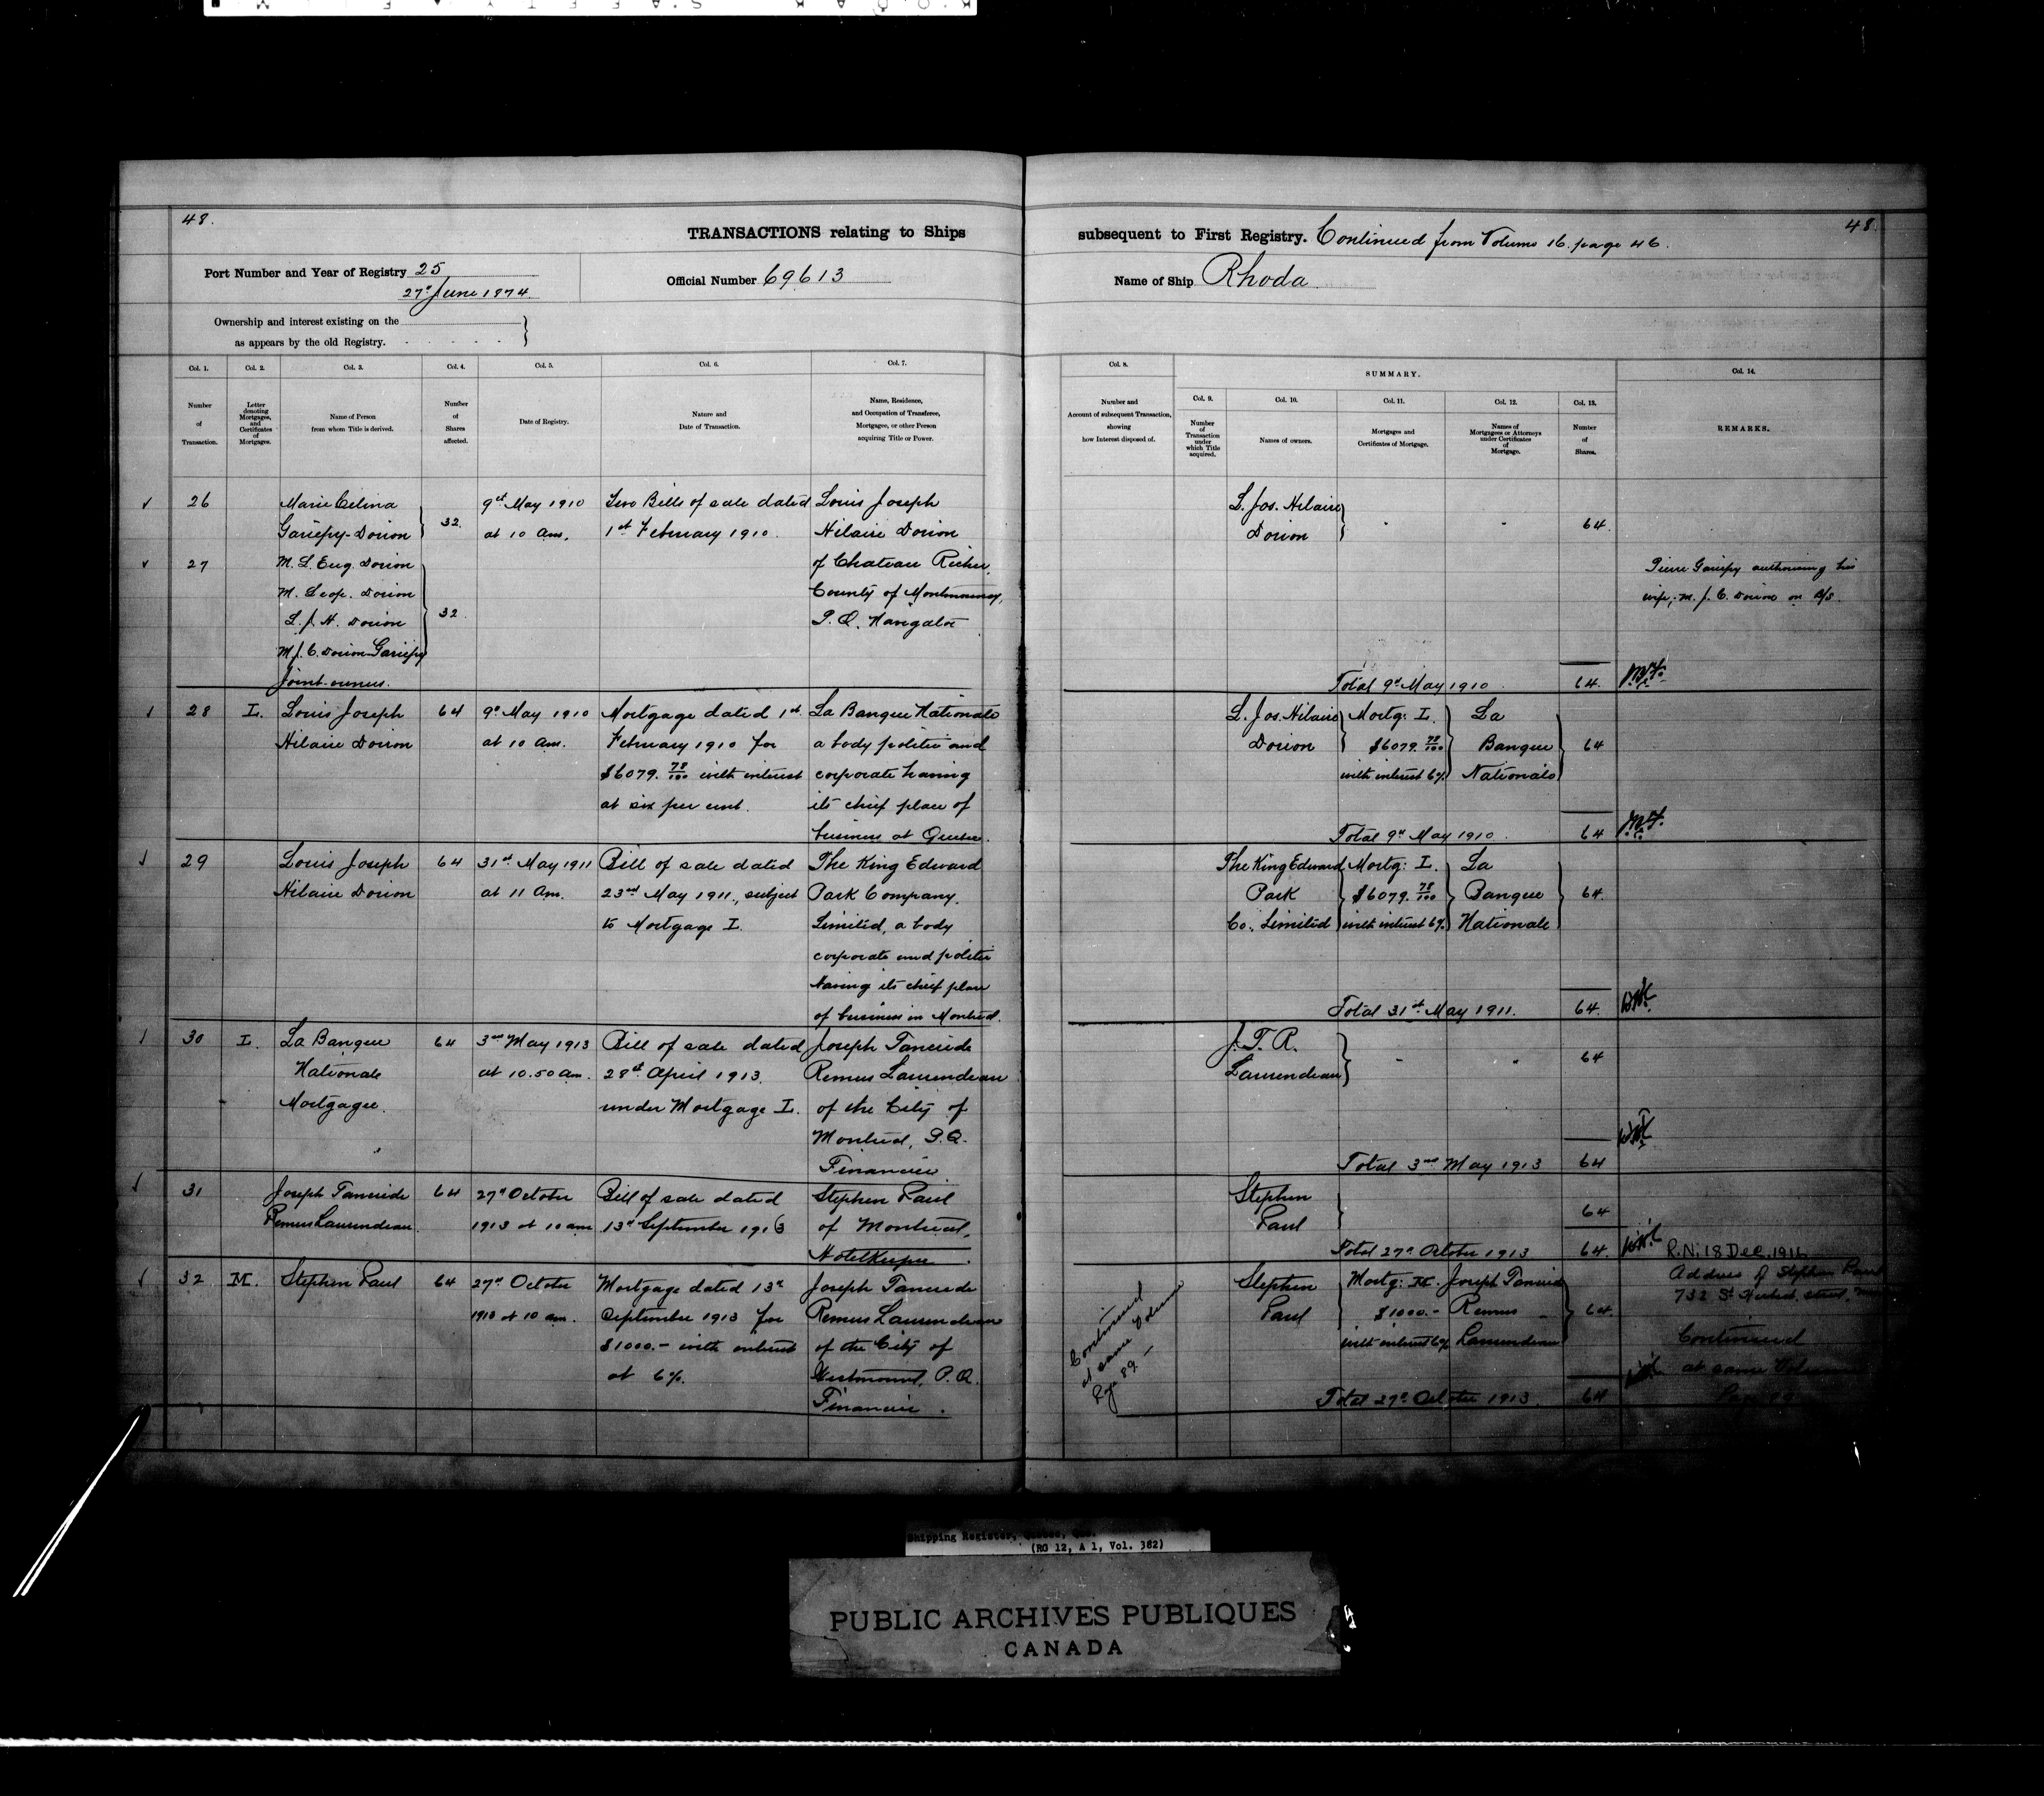 48.
TRANSACTIONS relating to Ships
Port Number and Year of Registry 25
27th June 1874.
Official Number 69613
Ownership and interest existing on the
as appears by the old Registry.
Col. 1.
Number
of
Transaction.
Col. 2.
Letter
denoting
Mortgages,
and
Certificates
of
Mortgages.
Col. 3.
Name of Person
from whom Title is derived.
Col. 4.
Number
of
Shares
affected.
Col. 5.
Date of Registry.
Col. 6.
Nature and
Date of Transaction.
Col. 7.
Name, Residence,
and Occupation of Transferee,
Mortgagee, or other Person
acquiring Title or Power.
26
Marie Celina
Gariépy-Dorion
32.
9th May 1910
at 10 am.
Two Bills of sale dated
1st February 1910.
Louis Joseph
Hilaire Dorion
of Chateau Richer,
County of Montmorency,
P.Q. Navigator
27
M. L. Eug. Dorion
M. Leop. Dorion
L. J. H. Dorion
M. J. C. Dorion-Gariépy
Joint-owners.
32.
28
L.
Louis Joseph
Hilaire Dorion
64
9th May 1910
at 10 am.
Mortgage dated 1st
February 1910 for
$6079. 78/100 with interest
at six per cent.
La Banque Nationale
a body politic and
corporate having
its chief place of
business at Quebec.
29
Louis Joseph
Hilaire Dorion
64
31st May 1911
at 11 Am.
Bill of sale dated
23rd May 1911, subject
to Mortgage L.
The King Edward
Park Company,
Limited, a body
corporate and politic
having its chief place
of business in Montreal.
30
L.
La Banque
Nationale
Mortgagee.
64
3rd May 1913
at 10.50 am.
Bill of sale dated
28th April 1913.
under Mortgage L.
Joseph Tancrède
Remus Laurendeau
of the City of
Montreal, P.Q.
Financier
31
Joseph Tancrède
Remus Laurendeau.
64
27th October
1913 at 10 am
Bill of sale dated
13th September 1913
Stephen Paul
of Montreal,
Hotelkeeper.
32
M.
Stephen Paul
64
27th October
1913 at 10 am.
Mortgage dated 13th
September 1913 for
$1000.- with interest
at 6%.
Joseph Tancrède
Remus Laurendeau
of the City of
Westmount, P.Q.
Financier.
subsequent to First Registry. Continued from Volume 16. page 46.
48.
Name of Ship Rhoda
Col. 8.
Number and
Account of subsequent Transaction,
showing
how Interest disposed of.
SUMMARY.
Col. 9.
Number
of
Transaction
under
which Title
acquired.
Col. 10.
Names of owners.
Col. 11.
Mortgages and
Certificates of Mortgage.
Col. 12.
Names of
Mortgagees or Attorneys
under Certificates
of
Mortgage.
Col. 13.
Number
of
Shares.
Col. 14.
REMARKS.
L. Jos. Hilaire
Dorion
64.
Pierre Gariépy authorising his
wife, M. J. C. Dorion on B/S.
Total 9th May 1910.
64.
L. Jos. Hilaire
Dorion
Mortg: L.
$6079. 78/100
with interest 6%
La
Banque
Nationale
64
Total 9th May 1910.
64
The King Edward
Park
Co., Limited
Mortg: L.
$6079. 78/100
with interest 6%
La
Banque
Nationale
64.
Total 31st May 1911.
64.
J. T. R.
Laurendeau
64
Total 3rd May 1913
64
Stephen
Paul
64
Total 27th October 1913
64.
R.N. 18 Dec. 1916
Continued
at same Volume
Page 89 -
Stephen
Paul
Mortg: M.
$1000.-
with interest 6%
Joseph Tancrède
Remus
Laurendeau
64.
Address of Stephen Paul
732 St street,
Continued
at same Volume
Total 27th October 1913
64
Shipping Register, Quebec, Que.
(RG 12, A 1, Vol. 382)
PUBLIC ARCHIVES PUBLIQUES
CANADA